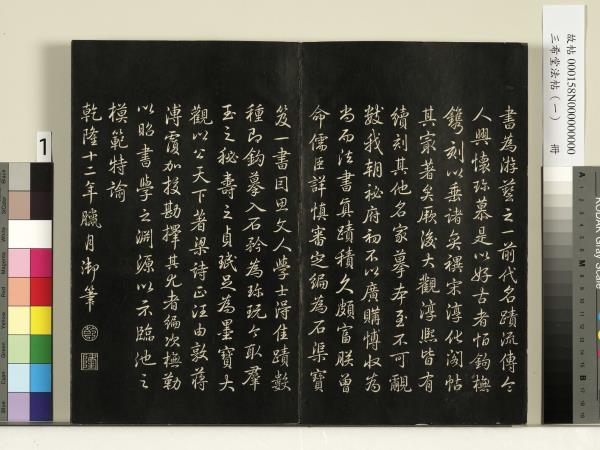 書為游藝之一前代名蹟流傳令
人興懷珍慕是以好古者恒鉤橅
鐫刻以垂諸久襈宋淳化閣帖
其最著矣厥後大觀淳熙皆有
續刻其他名家摹本至不可覼
數我朝祕府初不以廣購博收為
尚而法書真蹟積久頗富朕曾
命儒臣詳慎審定編為石渠寶
笈一書因思文人學士得佳蹟數
種即鉤摹入石矜為珍玩今取羣
玉之秘壽之貞珉足為墨寶大
觀以公天下著梁詩正汪由敦蔣
溥覆加校勘擇其尤者編次橅勒
以昭書學之淵源以示臨池之
模範特諭
乾隆十二年臘月御筆
乾
隆
故帖 000158N000000000
三希堂法帖（一） 冊
1
KODAK Gray Scale
A
M
B
Black
3/Color
White
Magenta
Red
Yellow
Green
Cyan
Blue